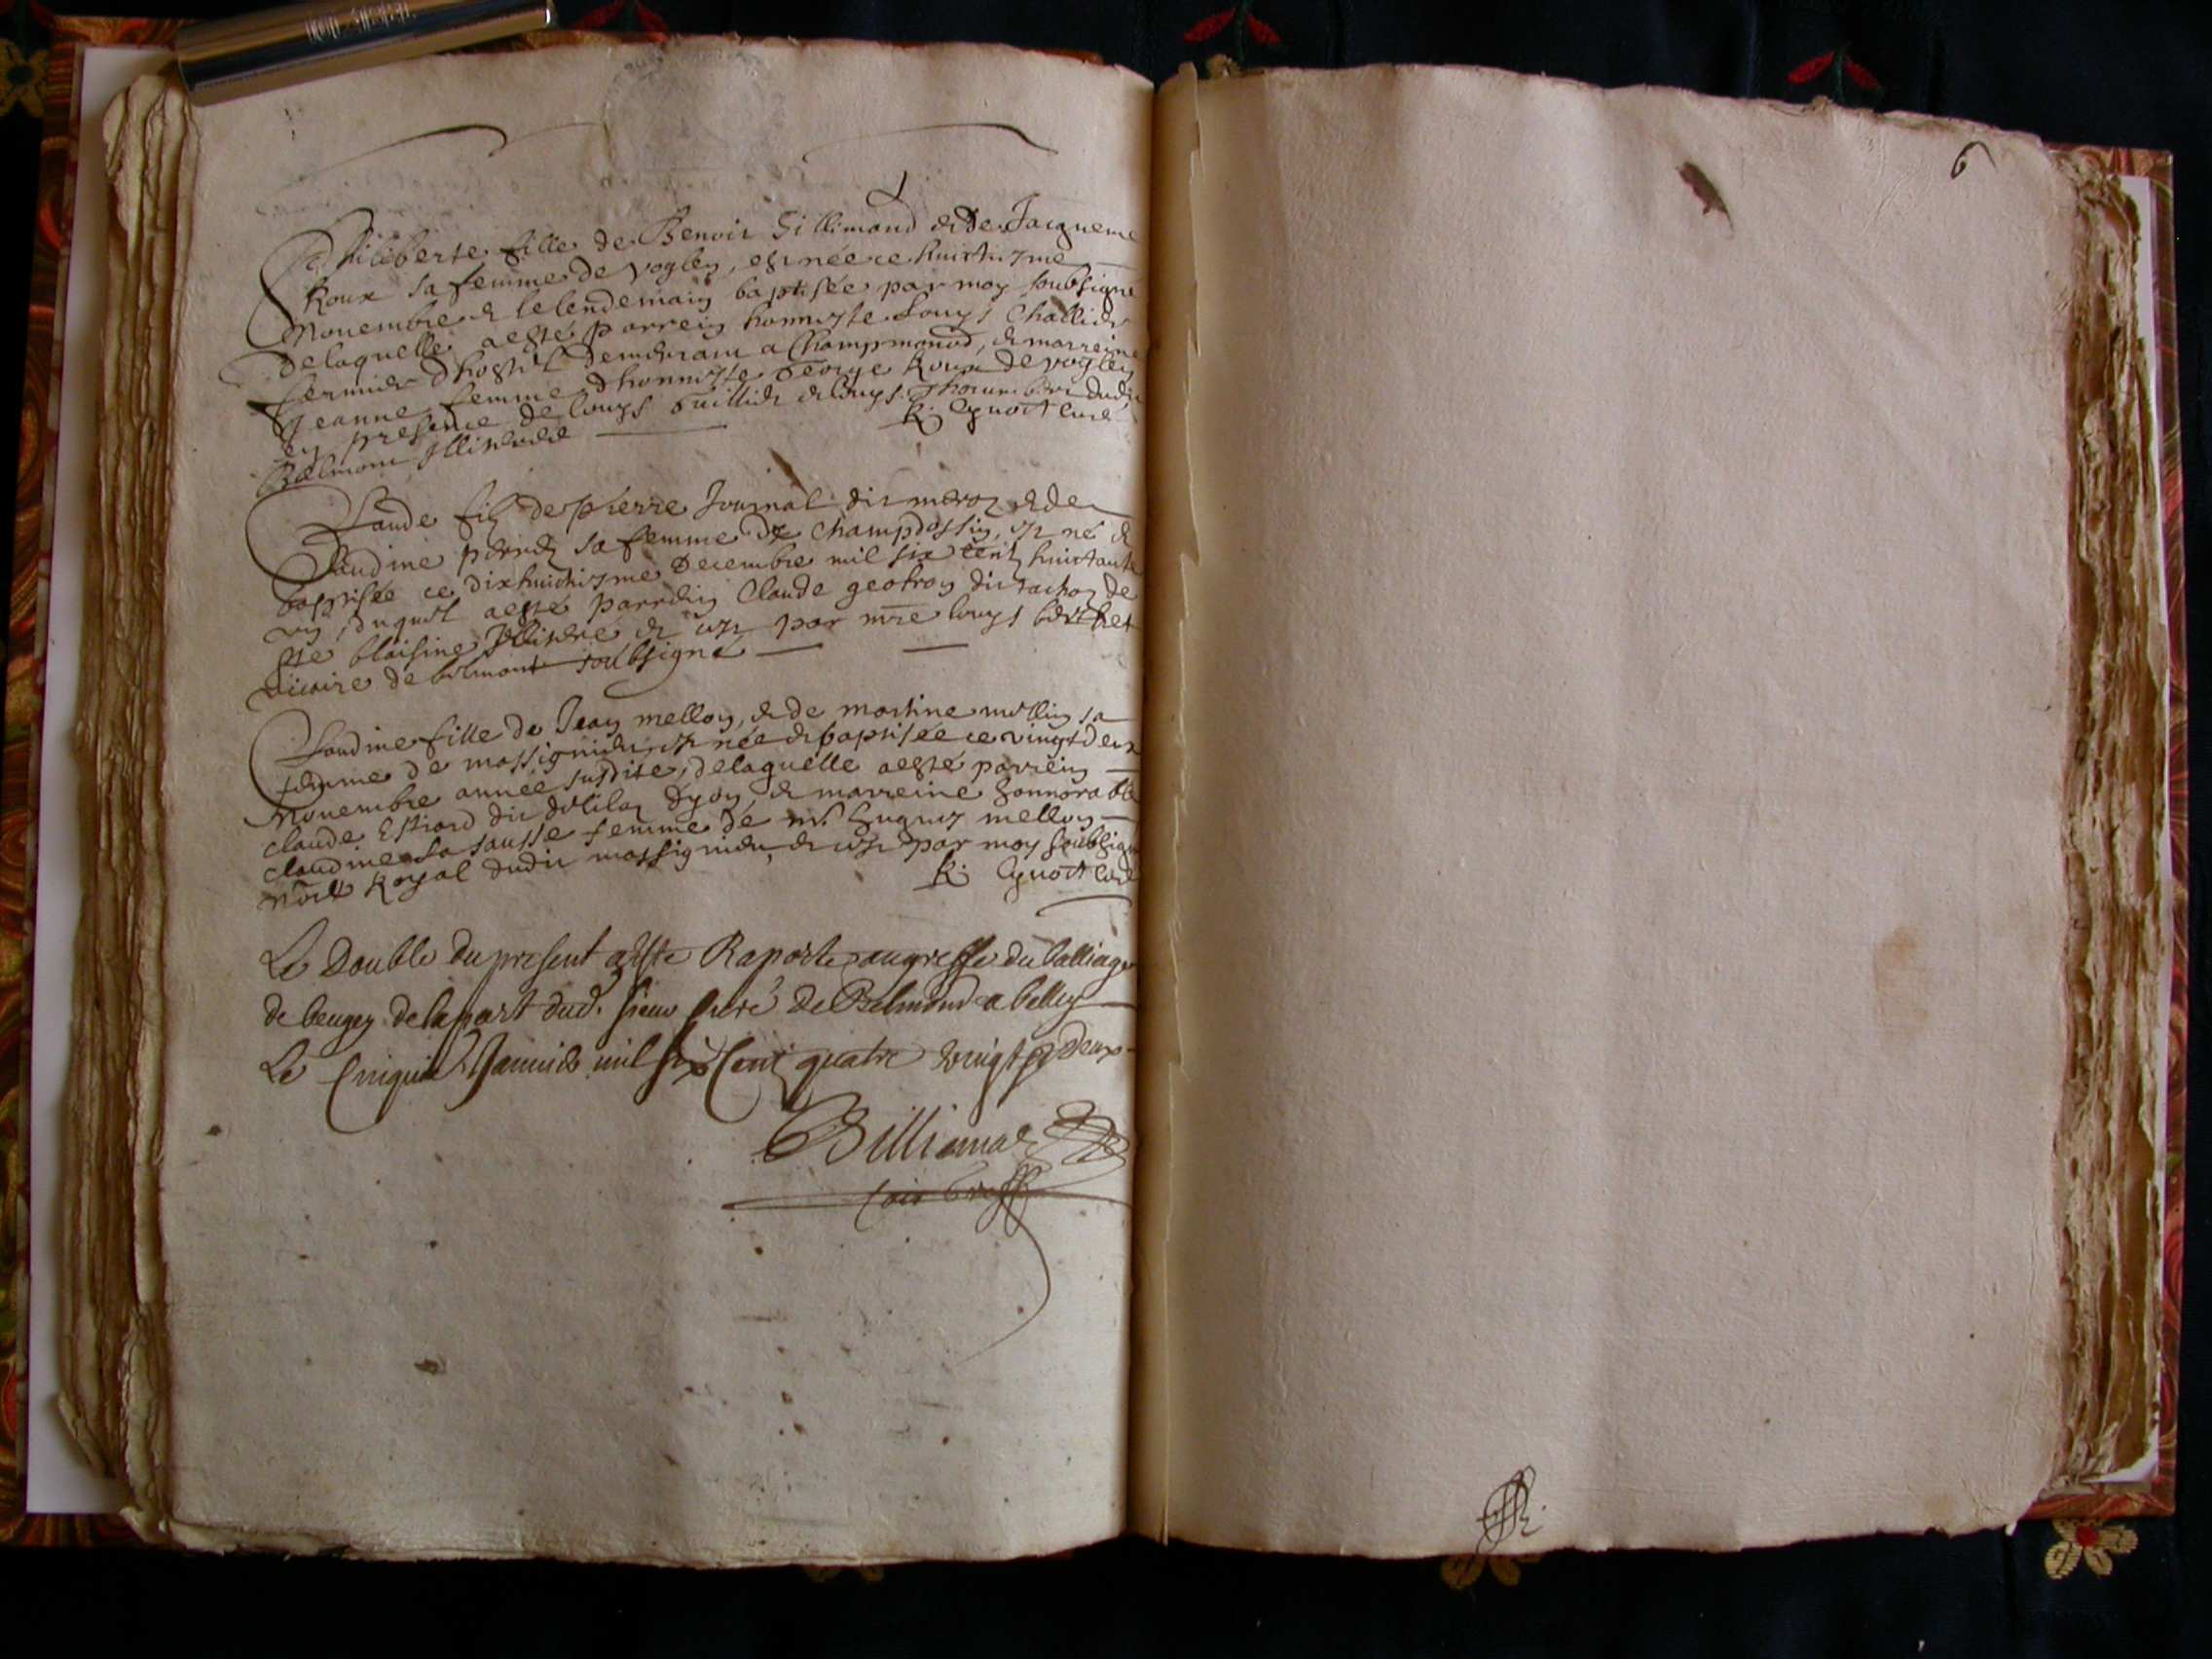 6
Philiberte fille de Benoit Gillimand & de Jacqueme
Roux sa femme de vogley, est née ce huictiezme
Nouembre & le lendemain baptisée par moy soubsigne
de laquelle a esté parrein honneste Louys Challier
fermier demeurant a Champmonod, & marreine
Jeanne femme d'honneste George Roux de vogley
en presence de Louys & Louys dudit
Belmont Illiterée R. Cynoct Curé
Claude filz de Pierre Journal dit & de
Claudine sa femme de Champdossin, est né &
baptisée ce dixhuictiezme Decembre mil six cent huictante
vn, duquel a esté parrein Claude geofroy dit de
blaisine Illiterée & ce par mre Louys berthet
vicaire de belmont soubsigné
Claudine fille de Jean melloy, & de martine sa
femme de massignieu est née & baptisée ce vingt deux
Nouembre année susdite, de laquelle a esté parrein
claude dit & marreine honnorable
claudine La sausse femme de mr. Hugues melloy
Royal dudit massignieu, & ce par moy soubsigné
R. Cynoct Curé
Le Double du present a esté Raporte au greffe du balliage
de beugey de la part dud. sieur Curé de Belmond a belley
Le Cinquie Janvier mil six Cent quatre vingt & deux
Billiemaz